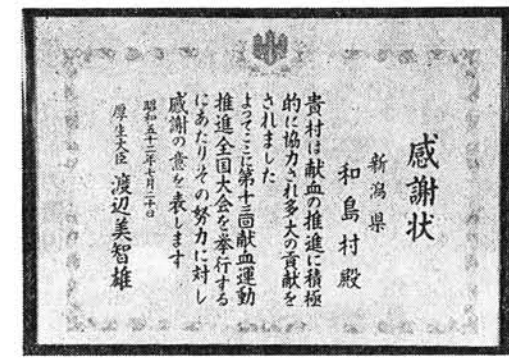 感謝状
新潟県
和島村殿
貴村は献血の推進に積極
的に協力され多大の貢献を
されました
よってここに第十三回献血運動
推進全国大会を挙行する
にあたりその努力に対し
感謝の意を表します
昭和五十二年七月二十日
厚生大臣 渡辺美智雄